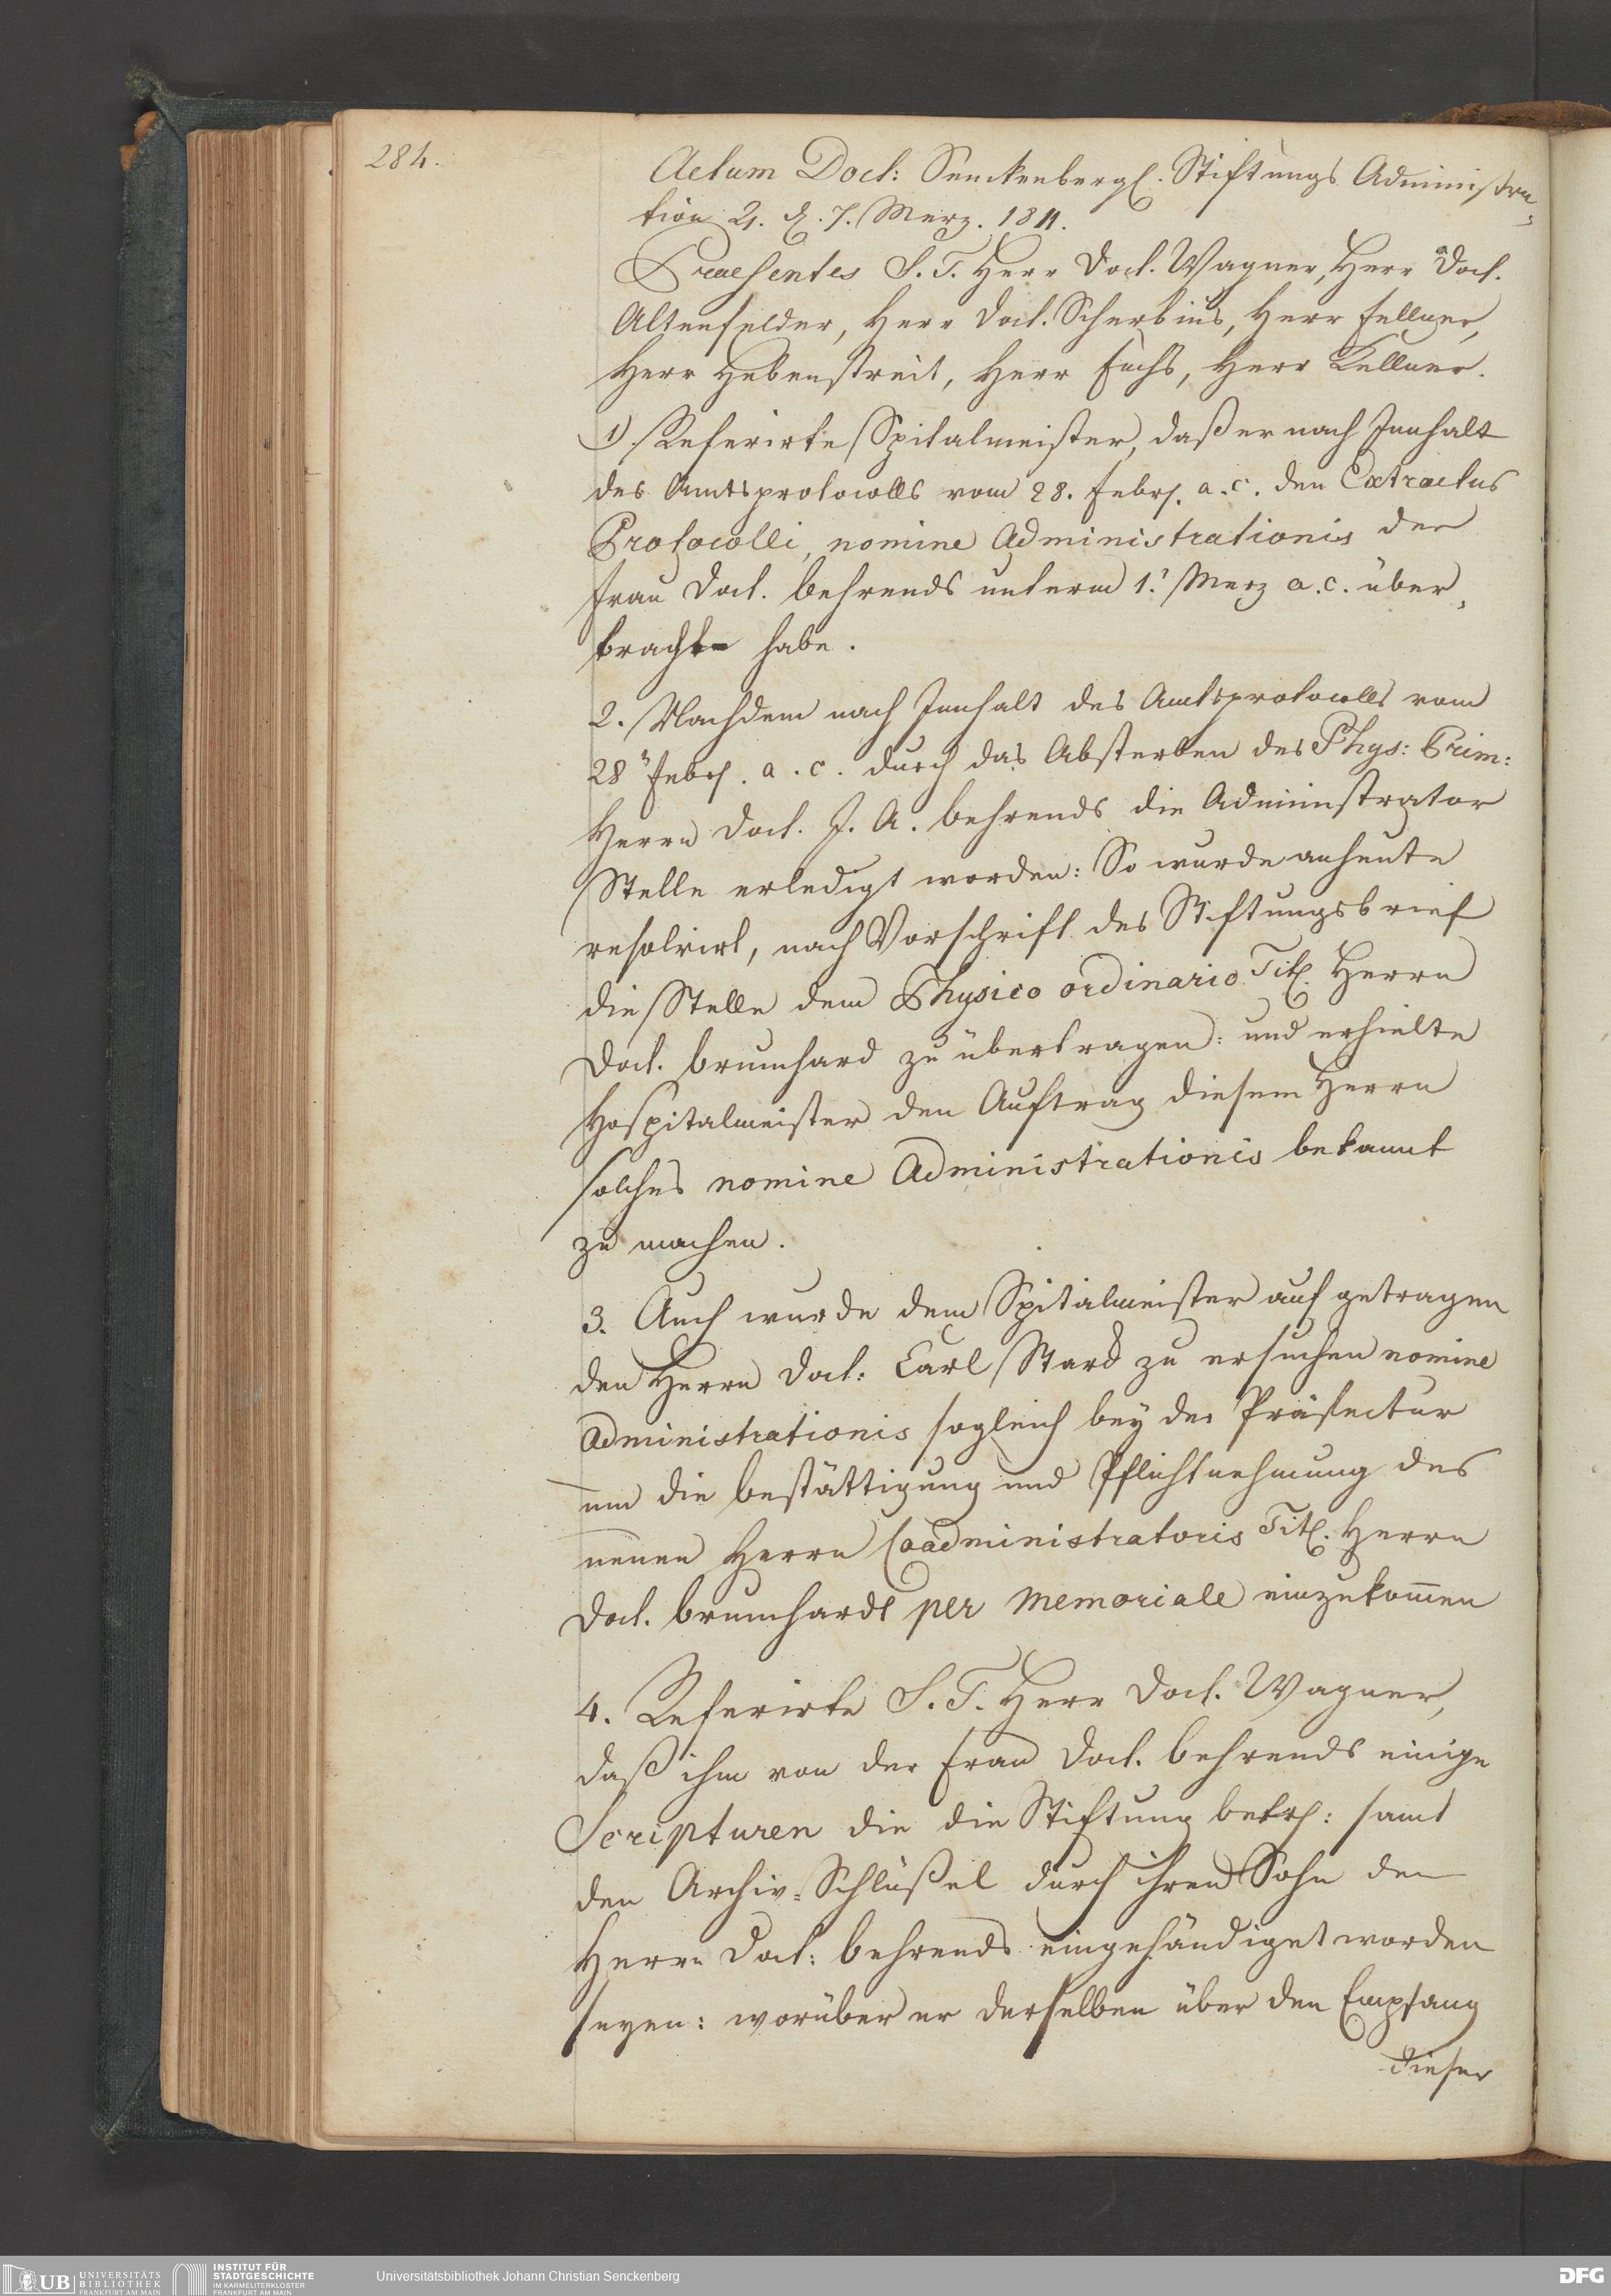 284.
Actum Doct: Senckenbergl. Stiftungs Administra-
tion 21. d. 7. Merz. 1811.
Praesentes S. T. Herr Doct. Wagner, Herr Doct.
Altenfelder, Herr Doct. Scherbius, Herr Fellner,
Herr Hebenstreit, Herr Fuchs, Herr Kellner.
1) Referirte Spitalmeister, daß er nach Innhalt
des Amtsprotocolls vom 28. Febr. a. c. den Extractus
Protocolli, nomine Administrationis der
Frau Doct. Behrends unterm 1. Merz a. c. über-
bracht habe.
2. Nachdem nach Innhalt des Amtsprotocolls vom
28 Febr. a. c. durch das Absterben des Phys: Prim:
Herrn Doct. J. A. Behrends die Administrator
Stelle erledigt worden: So wurde anheute
resolvirt, nach Vorschrift des Stiftungsbrief
die Stelle dem Physico ordinario Titl. Herrn
Doct. Brumhard zu übertragen: und erhielte
Hospitalmeister den Auftrag diesem Herrn
solches nomine Administrationis bekannt
zu machen.
3. Auch wurde dem Spitalmeister aufgetragen
den Herrn Doct: Carl Starck zu ersuchen nomine
Administrationis sogleich bey der Präfectur
um die Bestättigung und Pflichtnehmung des
neuen Herrn Coadministratoris Titl. Herrn
Doct. Brumhardt per Memoriale einzukom̄en
4. Referirte S. T. Herr Doct. Wagner,
daß ihm von der Frau Doct. Behrends einige
Scripturen die die Stiftung betr: samt
den Archiv-Schlüßel durch ihren Sohn den
Herrn Doct: Behrends eingehändiget worden
seyen: worüber er derselben über den Empfang
dieser
UB UNIVERSITÄTS
BIBLIOTHEK
FRANKFURT AM MAIN
INSTITUT FÜR
STADTGESCHICHTE
IM KARMELITERKLOSTER
FRANKFURT AM MAIN
Universitätsbibliothek Johann Christian Senckenberg
DFG